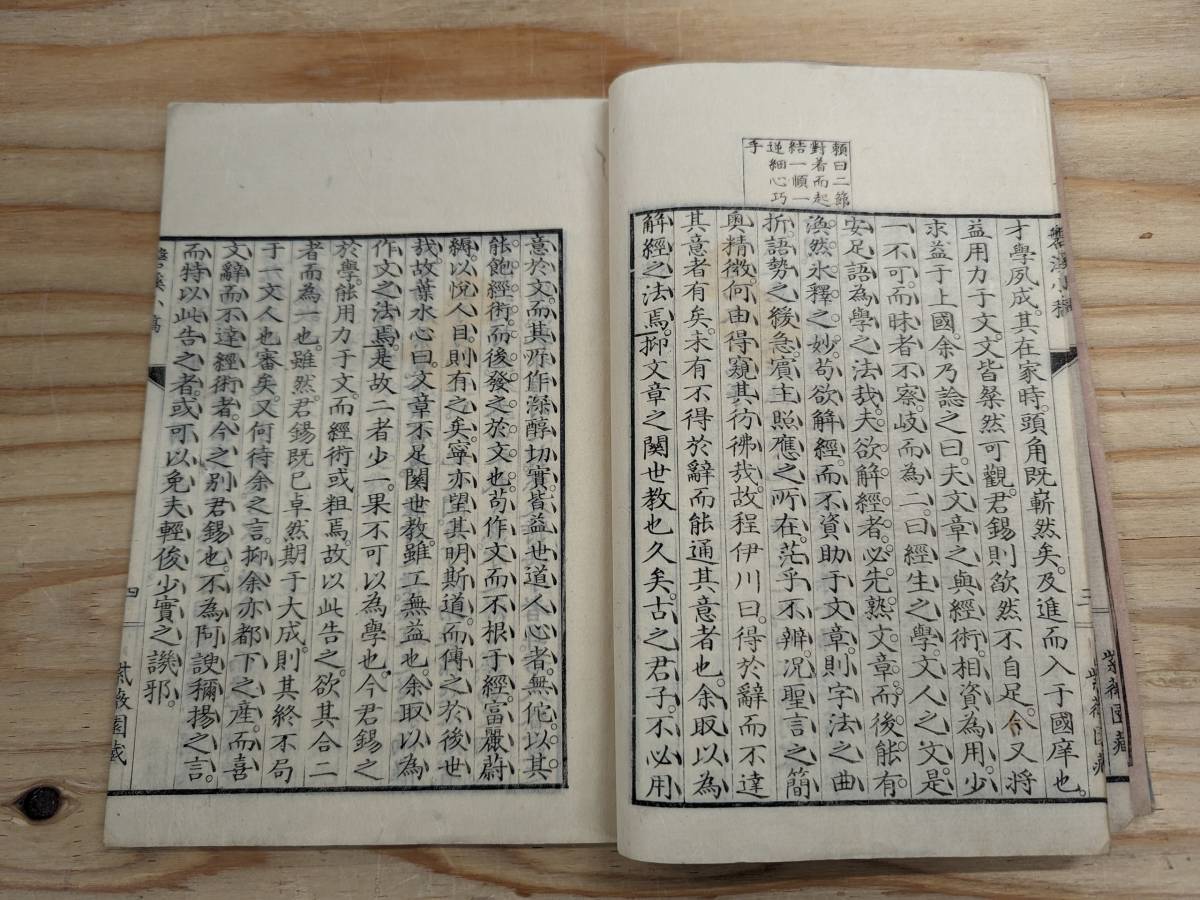 頼曰二節
對着而起
結一順一
逆細心巧
手
才學夙成。其在家時。頭角既嶄然矣。及進而入于國庠也。
益用力于文。文皆粲然可觀。君錫則欿然不自足。今又將
求益于上國。余乃諗之曰。夫文章之與經術。相資為用。少
一不可。而昧者不察。岐而為二。曰經生之學。文人之文。是
安足語為學之法哉。夫欲解經者。必先熟文章。而後能有
渙然氷釋之妙。苟欲解經。而不資助于文章。則字法之曲
折。語勢之緩急。賓主照應之所在。茫乎不辨。况聖言之簡
奧精微。何由得窺其彷彿哉。故程伊川曰。得於辭而不達
其意者有矣。未有不得於辭而能通其意者也。余取以為
解經之法焉。抑文章之関世教也久矣。古之君子。不必用
三
紫薇園藏
意於文。而其所作深醇切實。皆益世道人心者。無佗。以其
能飽經術。而後發之於文也。苟作文而不根于經。富嚴蔚
縟。以悅人目。則有之矣。寧亦望其明斯道。而傳之於後世
哉。故葉水心曰。文章不足関世教。雖工無益也。余取以為
作文之法焉。是故二者少一。果不可以為學也。今君錫之
於學。能用力于文。而經術或粗焉。故以此告之。欲其合二
者而為一也。雖然。君錫既已卓然期于大成。則其終不局
于一文人也審矣。又何待余之言。抑余亦都下之產。而喜
文辭而不達經術者。今之別君錫也。不為阿諛稱揚之言。
而特以此告之者。或可以免夫輕俊少實之譏邪。
四
紫薇園藏